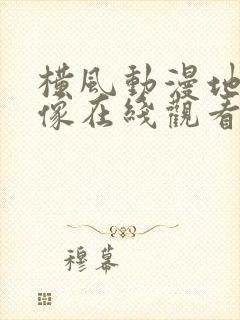 横風動漫地
像在綫觀看
穆幕